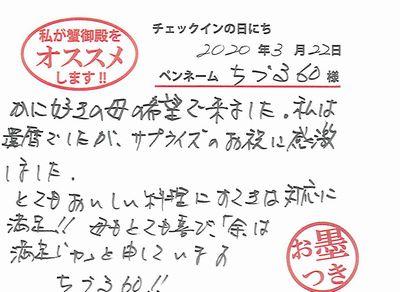 私が蟹御殿を
オススメ
します!!
チェックインの日にち
2020年3月22日
ペンネーム ちづる60様
かに好きの母の希望で来ました。私は
還暦でしたが、サプライズのお祝に感激
しました。
とてもおいしい料理にすてきな対応に
満足!! 母もとても喜び、「余は
満足じゃ」と申しています
ちづる60!!
お墨
つき